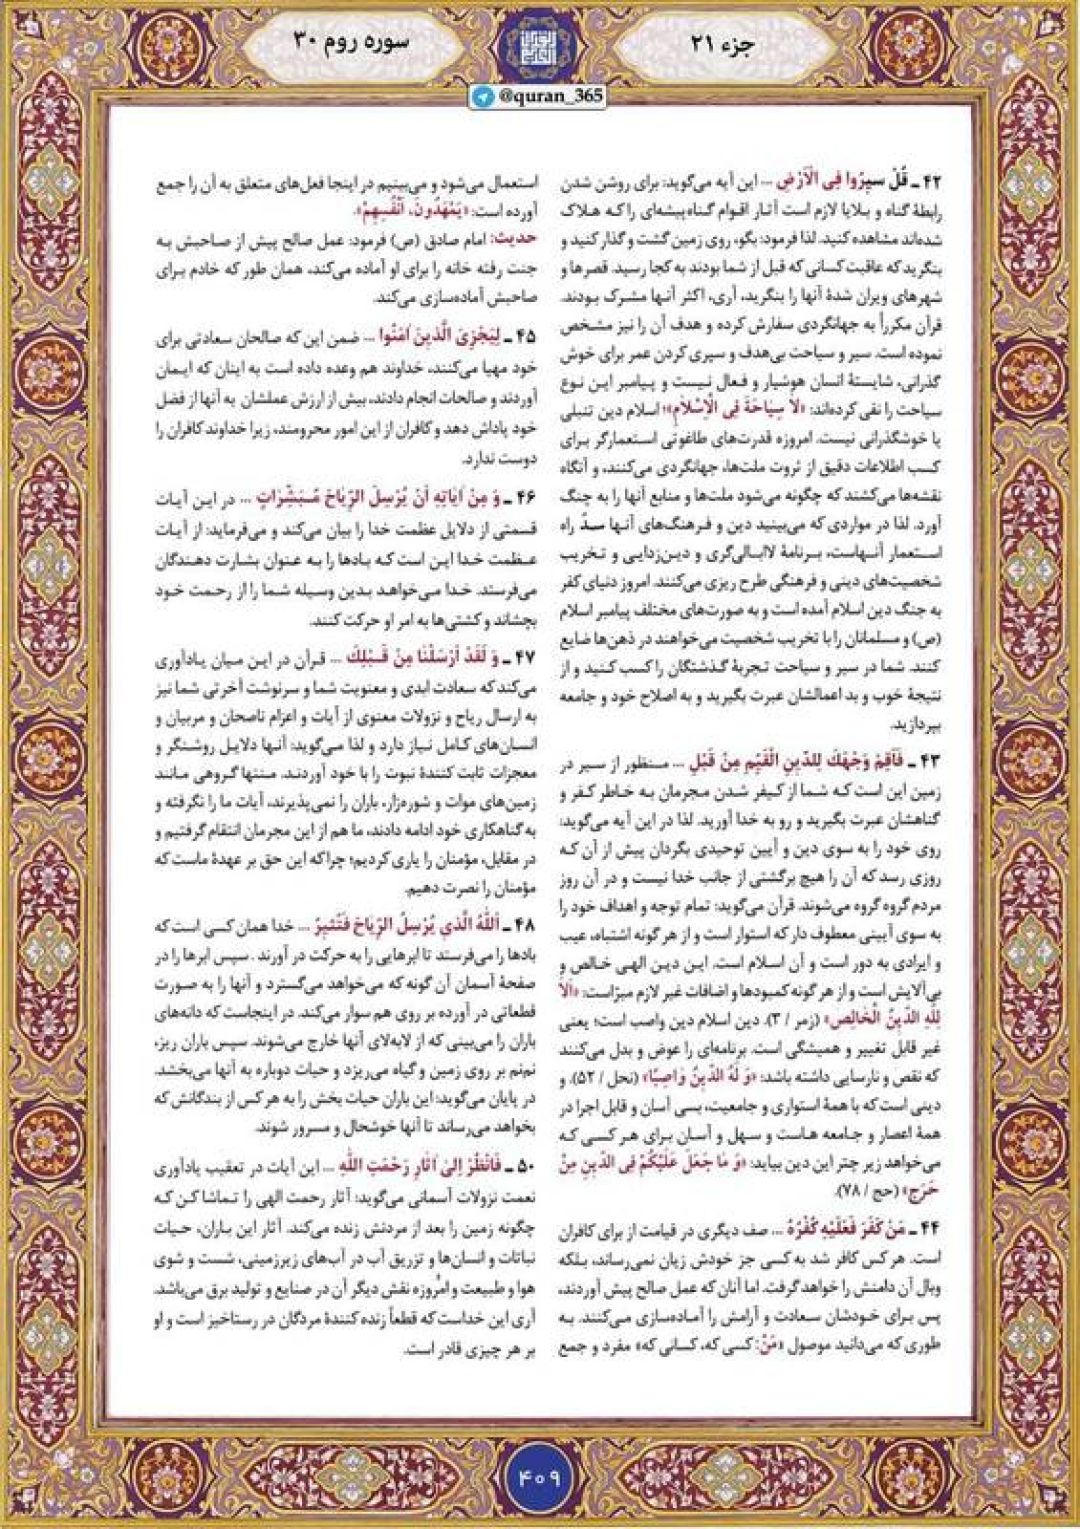 جزء ۲۱
سوره روم ۳۰
@quran_365
۴۲ ـ قُلْ سیرُوا فِی الْاَرْضِ ... این آیه می‌گوید: برای روشن شدن
رابطهٔ گناه و بلایا لازم است آثار اقوام گناه‌پیشه‌ای را که هلاک
شده‌اند مشاهده کنید. لذا فرمود: بگو، روی زمین گشت و گذار کنید و
بنگرید که عاقبت کسانی که قبل از شما بودند به کجا رسید. قصرها و
شهرهای ویران شدهٔ آنها را بنگرید، آری، اکثر آنها مشرک بودند.
قرآن مکرراً به جهانگردی سفارش کرده و هدف آن را نیز مشخص
نموده است. سیر و سیاحت بی‌هدف و سپری کردن عمر برای خوش
گذرانی، شایستهٔ انسان هوشیار و فعال نیست و پیامبر این نوع
سیاحت را نفی کرده‌اند: «لاٰ سِیاحَةَ فِی الْاِسْلامِ»؛ اسلام دین تنبلی
یا خوشگذرانی نیست. امروزه قدرت‌های طاغوتی استعمارگر برای
کسب اطلاعات دقیق از ثروت ملت‌ها، جهانگردی می‌کنند، و آنگاه
نقشه‌ها می‌کشند که چگونه می‌شود ملت‌ها و منابع آنها را به چنگ
آورد. لذا در مواردی که می‌بینید دین و فرهنگ‌های آنها سدّ راه
استعمار آنهاست، برنامهٔ لاابالی‌گری و دین‌زدایی و تخریب
شخصیت‌های دینی و فرهنگی طرح ریزی می‌کنند. امروز دنیای کفر
به جنگ دین اسلام آمده است و به صورت‌های مختلف پیامبر اسلام
(ص) و مسلمانان را با تخریب شخصیت می‌خواهند در ذهن‌ها ضایع
کنند. شما در سیر و سیاحت تجربهٔ گذشتگان را کسب کنید و از
نتیجهٔ خوب و بد اعمالشان عبرت بگیرید و به اصلاح خود و جامعه
بپردازید.
۴۳ ـ فَاَقِمْ وَجْهَكَ لِلدّینِ الْقَیِّمِ مِنْ قَبْلِ ... منظور از سیر در
زمین این است که شما از کیفر شدن مجرمان به خاطر کفر و
گناهشان عبرت بگیرید و رو به خدا آورید. لذا در این آیه می‌گوید:
روی خود را به سوی دین و آیین توحیدی بگردان پیش از آن که
روزی رسد که آن را هیچ برگشتی از جانب خدا نیست و در آن روز
مردم گروه گروه می‌شوند. قرآن می‌گوید: تمام توجه و اهداف خود را
به سوی آیینی معطوف دار که استوار است و از هر گونه اشتباه، عیب
و ایرادی به دور است و آن اسلام است. این دین الهی خالص و
بی‌آلایش است و از هر گونه کمبودها و اضافات غیر لازم مبرّاست: «اَلاٰ
لِلّٰهِ الدّینُ الْخالِص» (زمر / ۳). دین اسلام دین واصب است؛ یعنی
غیر قابل تغییر و همیشگی است. برنامه‌ای را عوض و بدل می‌کنند
که نقص و نارسایی داشته باشد: «وَ لَهُ الدّینُ وٰاصِبًا» (نحل / ۵۲). و
دینی است که با همهٔ استواری و جامعیت، بسی آسان و قابل اجرا در
همهٔ اعصار و جامعه هاست و سهل و آسان برای هر کسی که
می‌خواهد زیر چتر این دین بیاید: «وَ مٰا جَعَلَ عَلَیْکُمْ فِی الدّینِ مِنْ
حَرَجٍ» (حج / ۷۸).
۴۴ ـ مَنْ کَفَرَ فَعَلَیْهِ کُفْرُهُ ... صف دیگری در قیامت از برای کافران
است. هر کس کافر شد به کسی جز خودش زیان نمی‌رساند، بلکه
وبال آن دامنش را خواهد گرفت. اما آنان که عمل صالح پیش آوردند،
پس برای خودشان سعادت و آرامش را آماده‌سازی می‌کنند. به
طوری که می‌دانید موصول «مَنْ: کسی که، کسانی که» مفرد و جمع
استعمال می‌شود و می‌بینیم در اینجا فعل‌های متعلق به آن را جمع
آورده است: «یَمْهَدُونَ، اَنْفُسِهِمْ».
حدیث: امام صادق (ص) فرمود: عمل صالح پیش از صاحبش به
جنت رفته خانه را برای او آماده می‌کند، همان طور که خادم برای
صاحبش آماده‌سازی می‌کند.
۴۵ ـ لِیَجْزِیَ الَّذینَ اٰمَنُوا ... ضمن این که صالحان سعادتی برای
خود مهیا می‌کنند، خداوند هم وعده داده است به اینان که ایمان
آوردند و صالحات انجام دادند، بیش از ارزش عملشان به آنها از فضل
خود پاداش دهد و کافران از این امور محرومند، زیرا خداوند کافران را
دوست ندارد.
۴۶ ـ وَ مِنْ اٰیاتِهِ اَنْ یُرْسِلَ الرِّیاحَ مُبَشِّراتٍ ... در این آیات
قسمتی از دلایل عظمت خدا را بیان می‌کند و می‌فرماید: از آیات
عظمت خدا این است که بادها را به عنوان بشارت دهندگان
می‌فرستد. خدا می‌خواهد بدین وسیله شما را از رحمت خود
بچشاند و کشتی‌ها به امر او حرکت کنند.
۴۷ ـ وَ لَقَدْ اَرْسَلْنٰا مِنْ قَبْلِكَ ... قرآن در این میان یادآوری
می‌کند که سعادت ابدی و معنویت شما و سرنوشت آخرتی شما نیز
به ارسال ریاح و نزولات معنوی از آیات و اعزام ناصحان و مربیان و
انسان‌های کامل نیاز دارد و لذا می‌گوید: آنها دلایل روشنگر و
معجزات ثابت کنندهٔ نبوت را با خود آوردند. منتها گروهی مانند
زمین‌های موات و شوره‌زار، باران را نمی‌پذیرند، آیات ما را نگرفته و
به گناهکاری خود ادامه دادند، ما هم از این مجرمان انتقام گرفتیم و
در مقابل، مؤمنان را یاری کردیم؛ چراکه این حق بر عهدهٔ ماست که
مؤمنان را نصرت دهیم.
۴۸ ـ اَللّٰهُ الَّذی یُرْسِلُ الرِّیاحَ فَتُثیرُ ... خدا همان کسی است که
بادها را می‌فرستد تا ابرهایی را به حرکت در آورند. سپس ابرها را در
صفحهٔ آسمان آن گونه که می‌خواهد می‌گسترد و آنها را به صورت
قطعاتی در آورده بر روی هم سوار می‌کند. در اینجاست که دانه‌های
باران را می‌بینی که از لابه‌لای آنها خارج می‌شوند. سپس باران ریز،
نم‌نم بر روی زمین و گیاه می‌ریزد و حیات دوباره به آنها می‌بخشد.
در پایان می‌گوید: این باران حیات بخش را به هر کس از بندگانش که
بخواهد می‌رساند تا آنها خوشحال و مسرور شوند.
۵۰ ـ فَانْظُرْ اِلیٰ اٰثارِ رَحْمَتِ اللّٰهِ ... این آیات در تعقیب یادآوری
نعمت نزولات آسمانی می‌گوید: آثار رحمت الهی را تماشا کن که
چگونه زمین را بعد از مردنش زنده می‌کند. آثار این باران، حیات
نباتات و انسان‌ها و تزریق آب در آب‌های زیرزمینی، شست و شوی
هوا و طبیعت و امروزه نقش دیگر آن در صنایع و تولید برق می‌باشد.
آری این خداست که قطعاً زنده کنندهٔ مردگان در رستاخیز است و او
بر هر چیزی قادر است.
۴۰۹